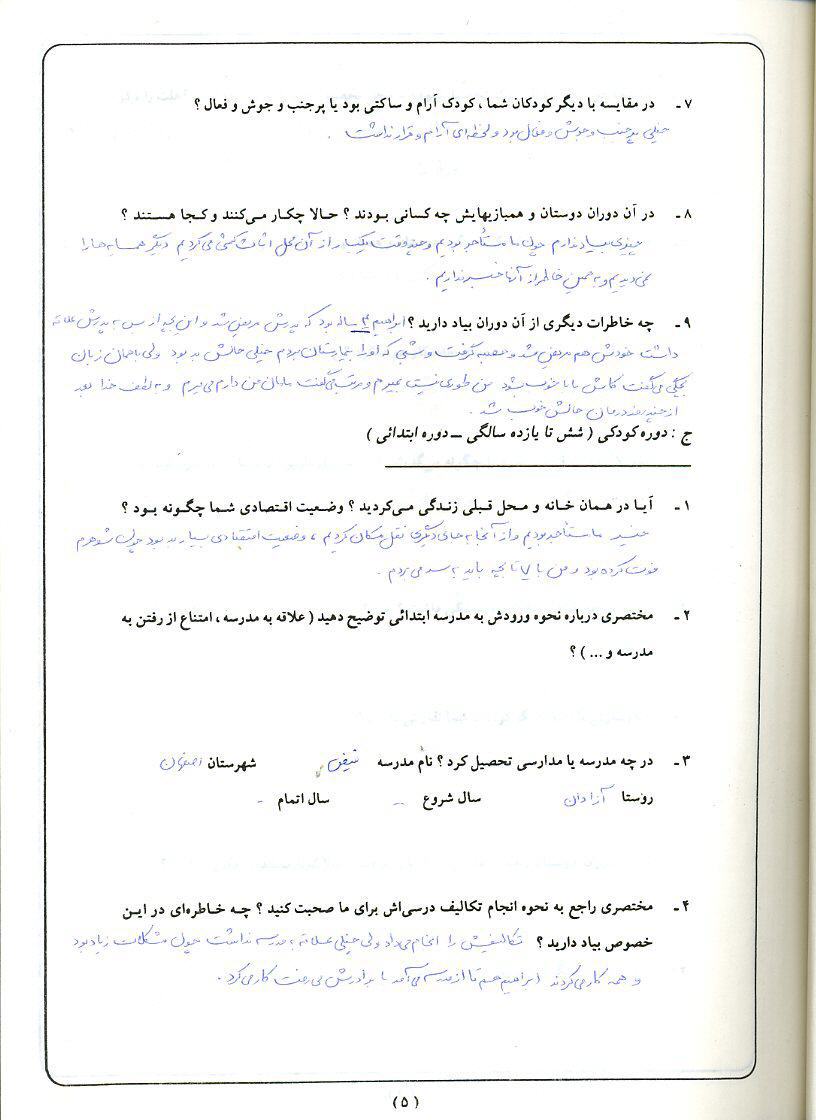 ۷ـ در مقایسه با دیگر کودکان شما ، کودک آرام و ساکتی بود یا پرجنب و جوش و فعال ؟
خیلی پر جنب و جوش و فعال بود و لحظه‌ای آرام و قرار نداشت .
۸ـ در آن دوران دوستان و همبازیهایش چه کسانی بودند ؟ حالا چکار می‌کنند و کجا هستند ؟
چیزی بیاد ندارم چون ما مستأجر بودیم و چند وقت یکبار از آن محل اثاث کشی می‌کردیم دیگر همسایه‌ها را
نمی‌دیدیم و به همین خاطر از آنها خبر نداریم .
۹ـ چه خاطرات دیگری از آن دوران بیاد دارید ؟ ابراهیم ۴ ساله بود که پدرش مریض شد و این بچه از بس به پدرش علاقه
داشت خودش هم مریض شد و حصبه گرفت و شبی که او را بیمارستان بردم خیلی حالش بد بود ولی با همان زبان
بچگی می‌گفت کاش بابا خوب بشود من طوری نیست بمیرم و مرتب می‌گفت مامان من دارم می‌میرم و به لطف خدا بعد
از چند روز درمان حالش خوب شد .
ج : دوره کودکی ( شش تا یازده سالگی ــ دوره ابتدائی )
۱ـ آیا در همان خانه و محل قبلی زندگی می‌کردید ؟ وضعیت اقتصادی شما چگونه بود ؟
خیر ما مستأجر بودیم و از آنجا به جای دیگری نقل مکان کردیم ، وضعیت اقتصادی بسیار بد بود چون شوهرم
فوت کرده بود و من با ۷ تا بچه باید به سر می‌بردم .
۲ـ مختصری درباره نحوه ورودش به مدرسه ابتدائی توضیح دهید ( علاقه به مدرسه ، امتناع از رفتن به
مدرسه و ... ) ؟
۳ـ در چه مدرسه یا مدارسی تحصیل کرد ؟ نام مدرسه شهرستان اصفهان
روستا آزادان سال شروع - سال اتمام -
۴ـ مختصری راجع به نحوه انجام تکالیف درسی‌اش برای ما صحبت کنید ؟ چه خاطره‌ای در این
خصوص بیاد دارید ؟ تکالیفش را انجام می‌داد ولی خیلی علاقه به مدرسه نداشت چون مشکلات زیاد بود
و همه کار می‌کردند ابراهیم هم تا از مدرسه می‌آمد با برادرش می‌رفت کار می‌کرد .
( ۵ )